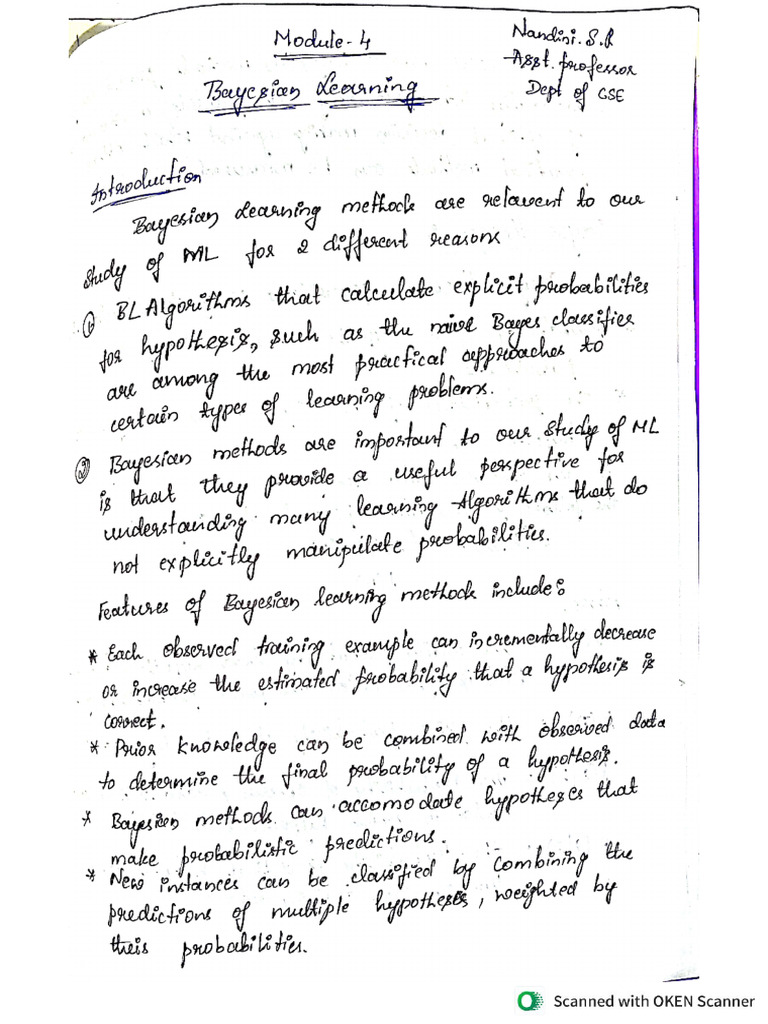 Module-4
Nandini.S.R
Asst. professor
Dept of CSE
Bayesian Learning
Introduction
Bayesian Learning methods are relavent to our
study of ML for 2 different reasons
① BL Algorithms that calculate explicit probabilities
for hypothesis, such as the naive Bayes classifier
are among the most practical approaches to
certain types of learning problems.
② Bayesian methods are important to our study of ML
is that they provide a useful perspective for
understanding many learning Algorithms that do
not explicitly manipulate probabilities.
Features of Bayesian learning methods include:
* Each observed training example can incrementally decrease
or increase the estimated probability that a hypothesis is
correct.
* Prior knowledge can be combined with observed data
to determine the final probability of a hypothesis.
* Bayesian methods can accomodate hypotheses that
make probabilistic predictions.
* New instances can be classified by combining the
predictions of multiple hypotheses, weighted by
their probabilities.
Scanned with OKEN Scanner